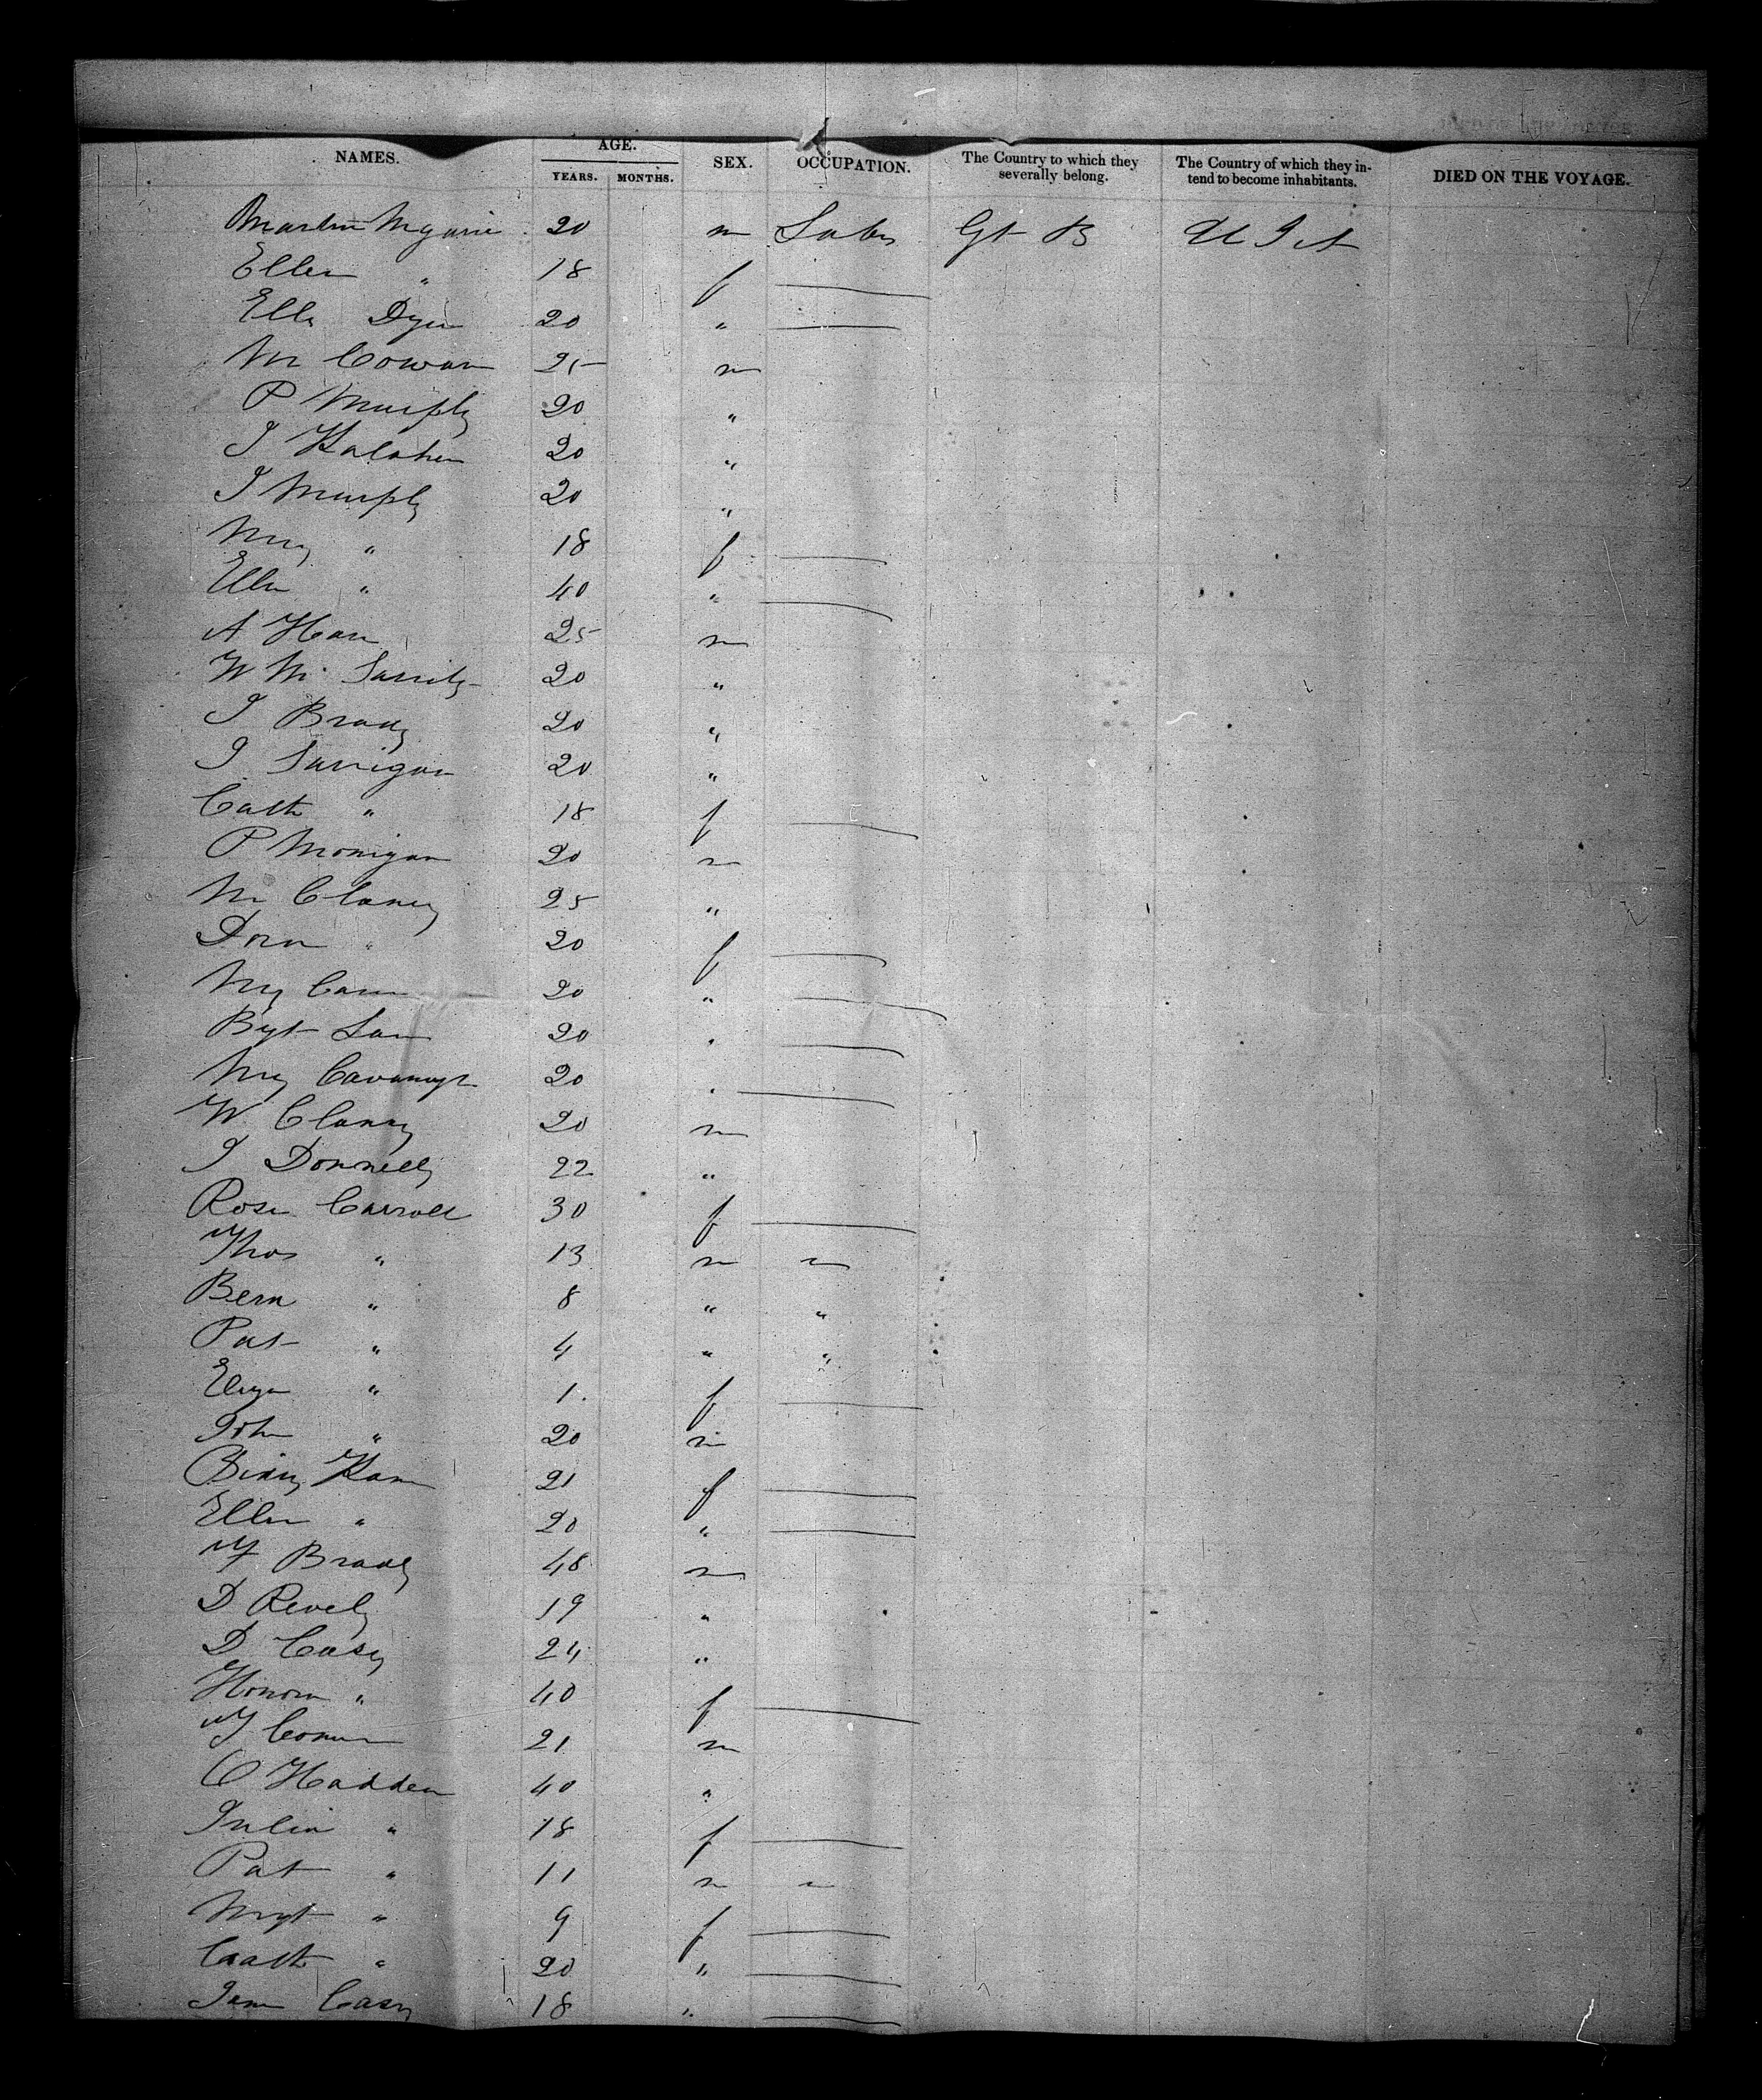 NAMES. AGE. YEARS. MONTHS. SEX. OCCUPATION. The Country to which they severally belong. The Country of which they intend to become inhabitants. DIED ON THE VOYAGE.
Martin 20 m Labr Gt B U S A
Ellen " 18 f
Elln Dyer 20 "
M Cowan 25 m
P Murphy 20 "
J Kalahen 20 "
J Murphy 20 "
Mry " 18 f
Elln " 40 "
A Hare 25 m
W M 20 "
J Brady 20 "
J Larrigan 20 "
Cath " 18 f
P Monigan 20 m
M Clancy 25 "
Dora " 20 f
Mry 20 "
Bgt 20 "
Mry Cavanagh 20 "
W Clancy 20 m
J Donnelly 22 "
Rose Carroll 30 f
Thos " 13 m
Bern " 8 " "
Pat " 4 " "
Eliza " 1 f
John " 20 m
Biddy Kane 21 f
Ellen " 20 "
T Brady 48 m
D Revely 19 "
D Casey 24 "
Honora " 40 f
T 21 m
O Hadden 40 "
Julia " 18 f
Pat " 11 m
Mrgt " 9 f
Cath " 20 "
Jane Casey 18 "